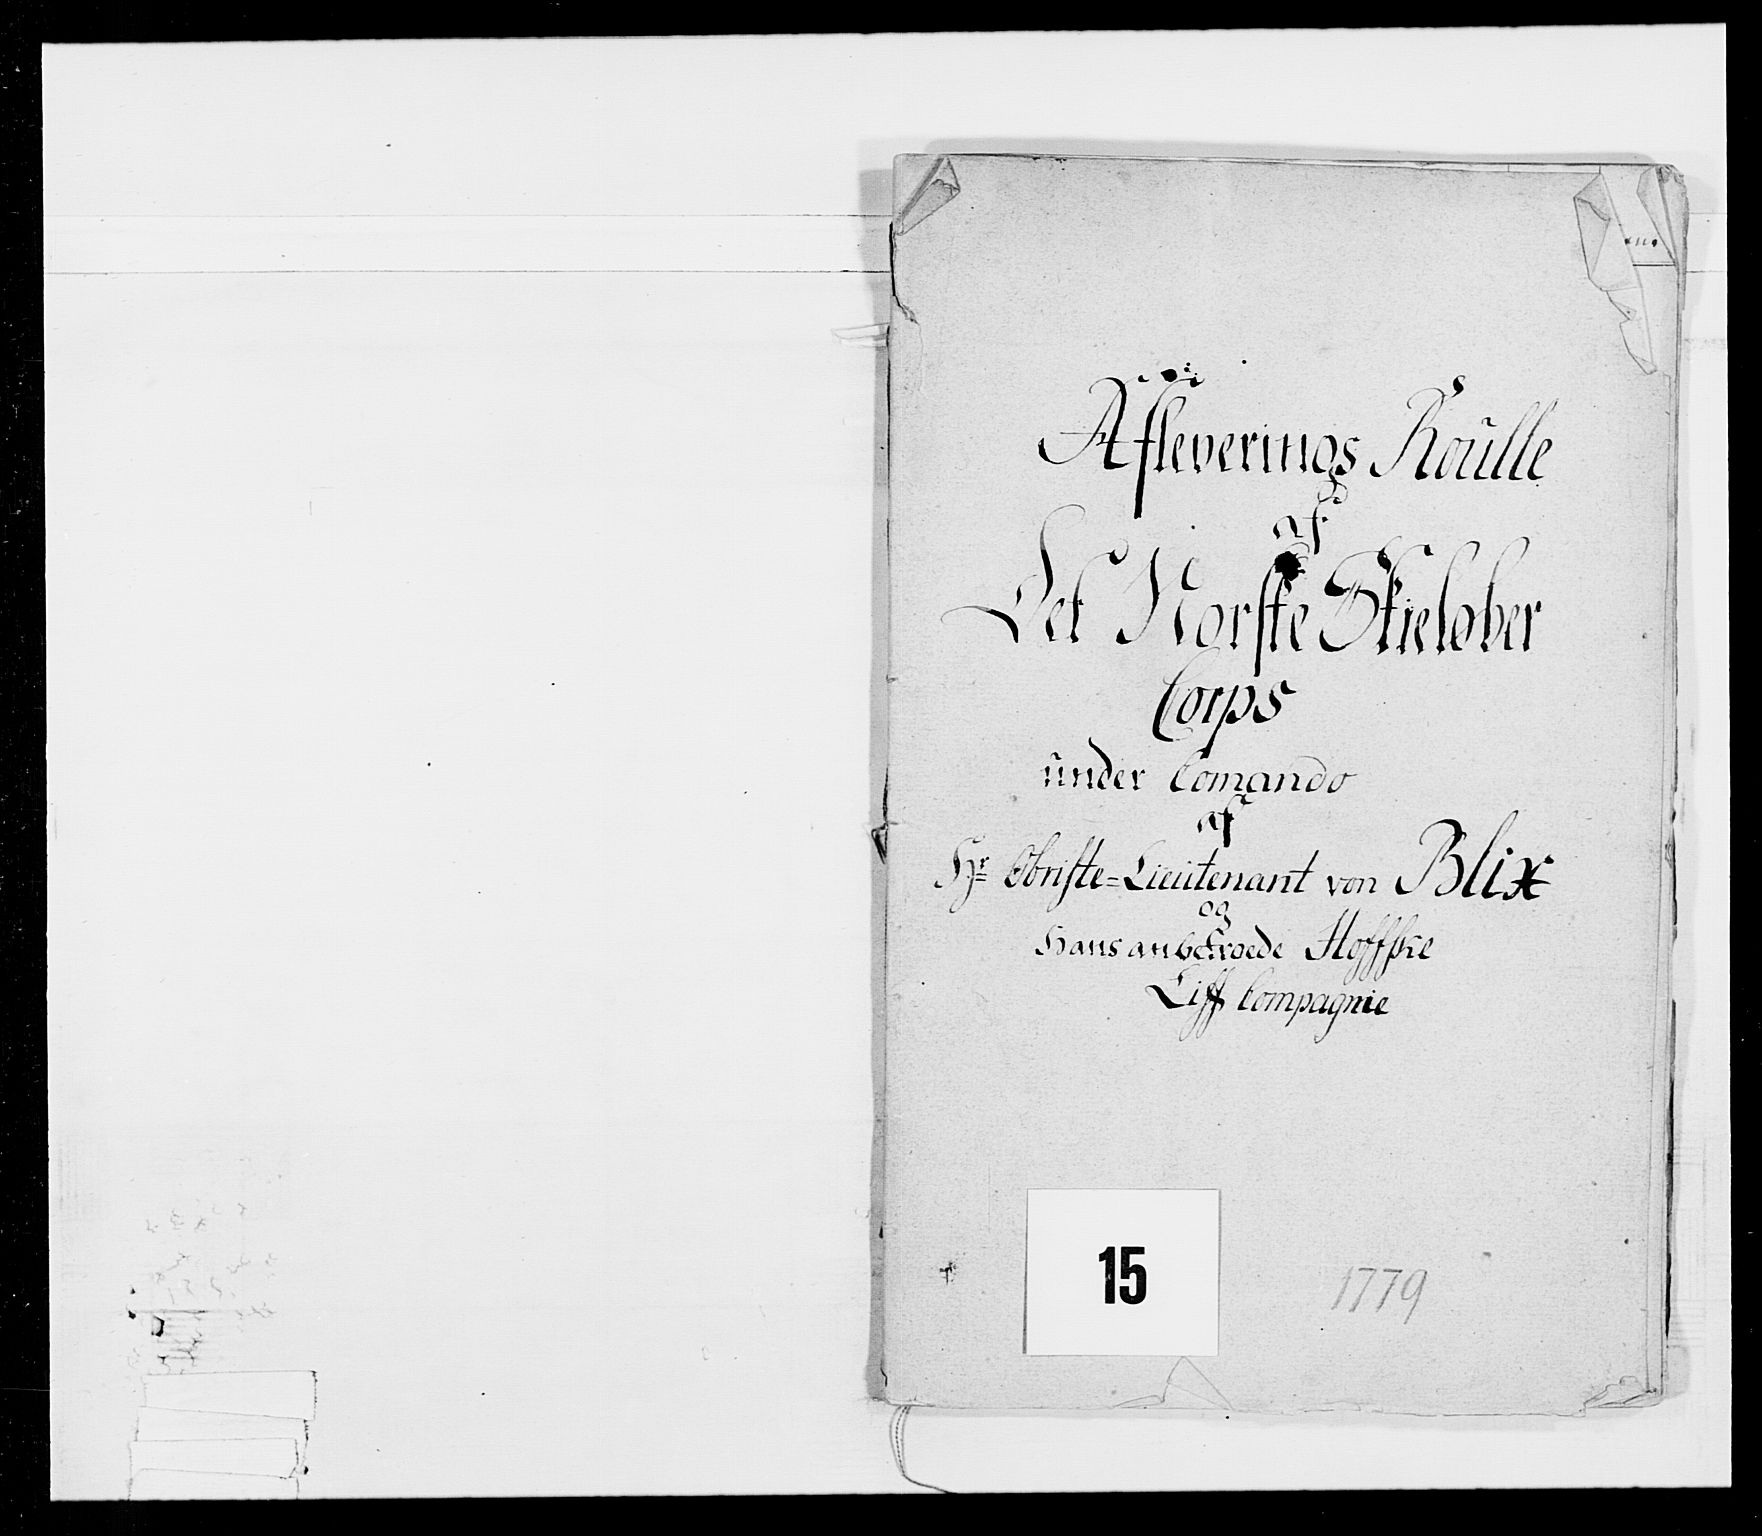 Afleverings Roulle
af
Det Norske Skieløber
Corps
under Comando
af
Hr Obriste=Lieutenant von Blix
og
Hans anbetroede Hoffske
Liff Compagnie
15
1779